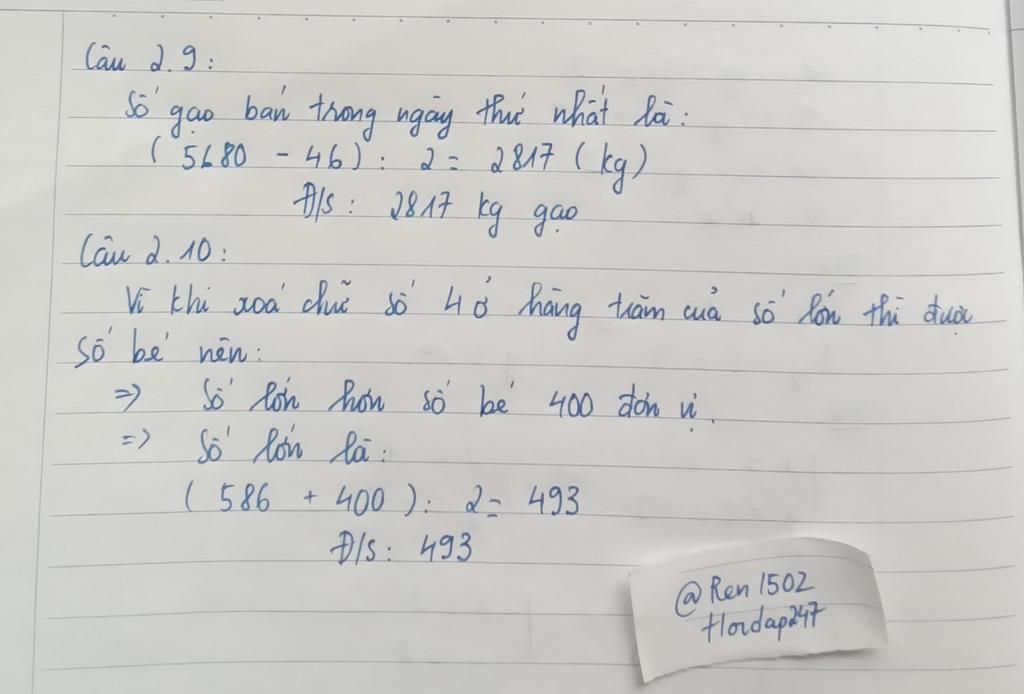 Câu 2.9:
Số gạo bán trong ngày thứ nhất là:
( 5680 - 46 ) : 2 = 2817 ( kg )
Đ/s : 2817 kg gạo
Câu 2.10 :
Vì khi xoá chữ số 4 ở hàng trăm của số lớn thì được
số bé nên :
=> Số lớn hơn số bé 400 đơn vị.
=> Số lớn là :
( 586 + 400 ) : 2 = 493
Đ/s : 493
@Ren1502
Hoidap247